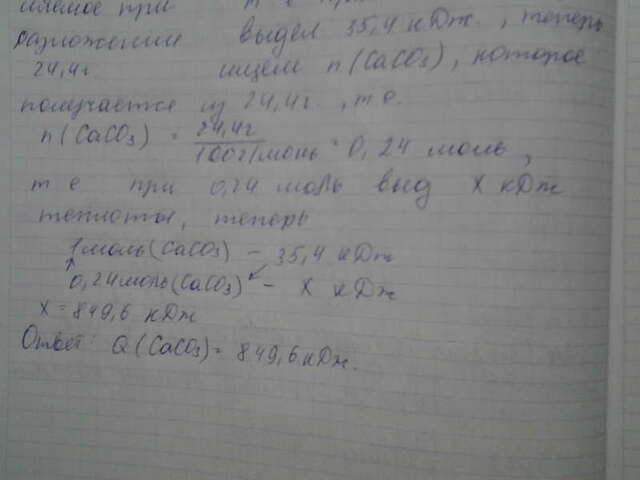 ляемое при т е при
разложении выдел 35,4 кДж. , теперь
24,4г ищем n(CaCO3), которое
получается из 24,4г. , т е.
n(CaCO3) = 24,4г / 100г/моль = 0,24 моль,
т е при 0,24 моль выд X кДж
теплоты, теперь
1 моль(CaCO3) – 35,4 кДж
0,24 моль(CaCO3) – X кДж
X = 849,6 кДж
Ответ: Q(CaCO3) = 849,6 кДж.